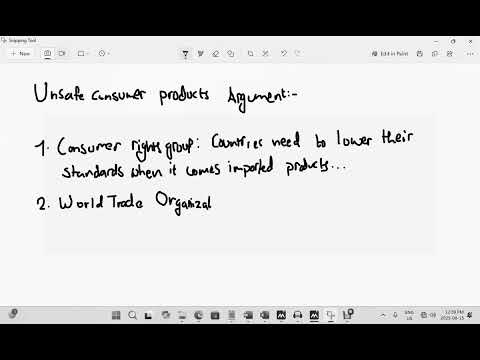 Snipping Tool
New
Edit in Paint
Unsafe consumer products Argument:-
1. Consumer rights group: Countries need to lower their
standards when it comes imported products...
2. World Trade Organizat
ENG
US
12:59 PM